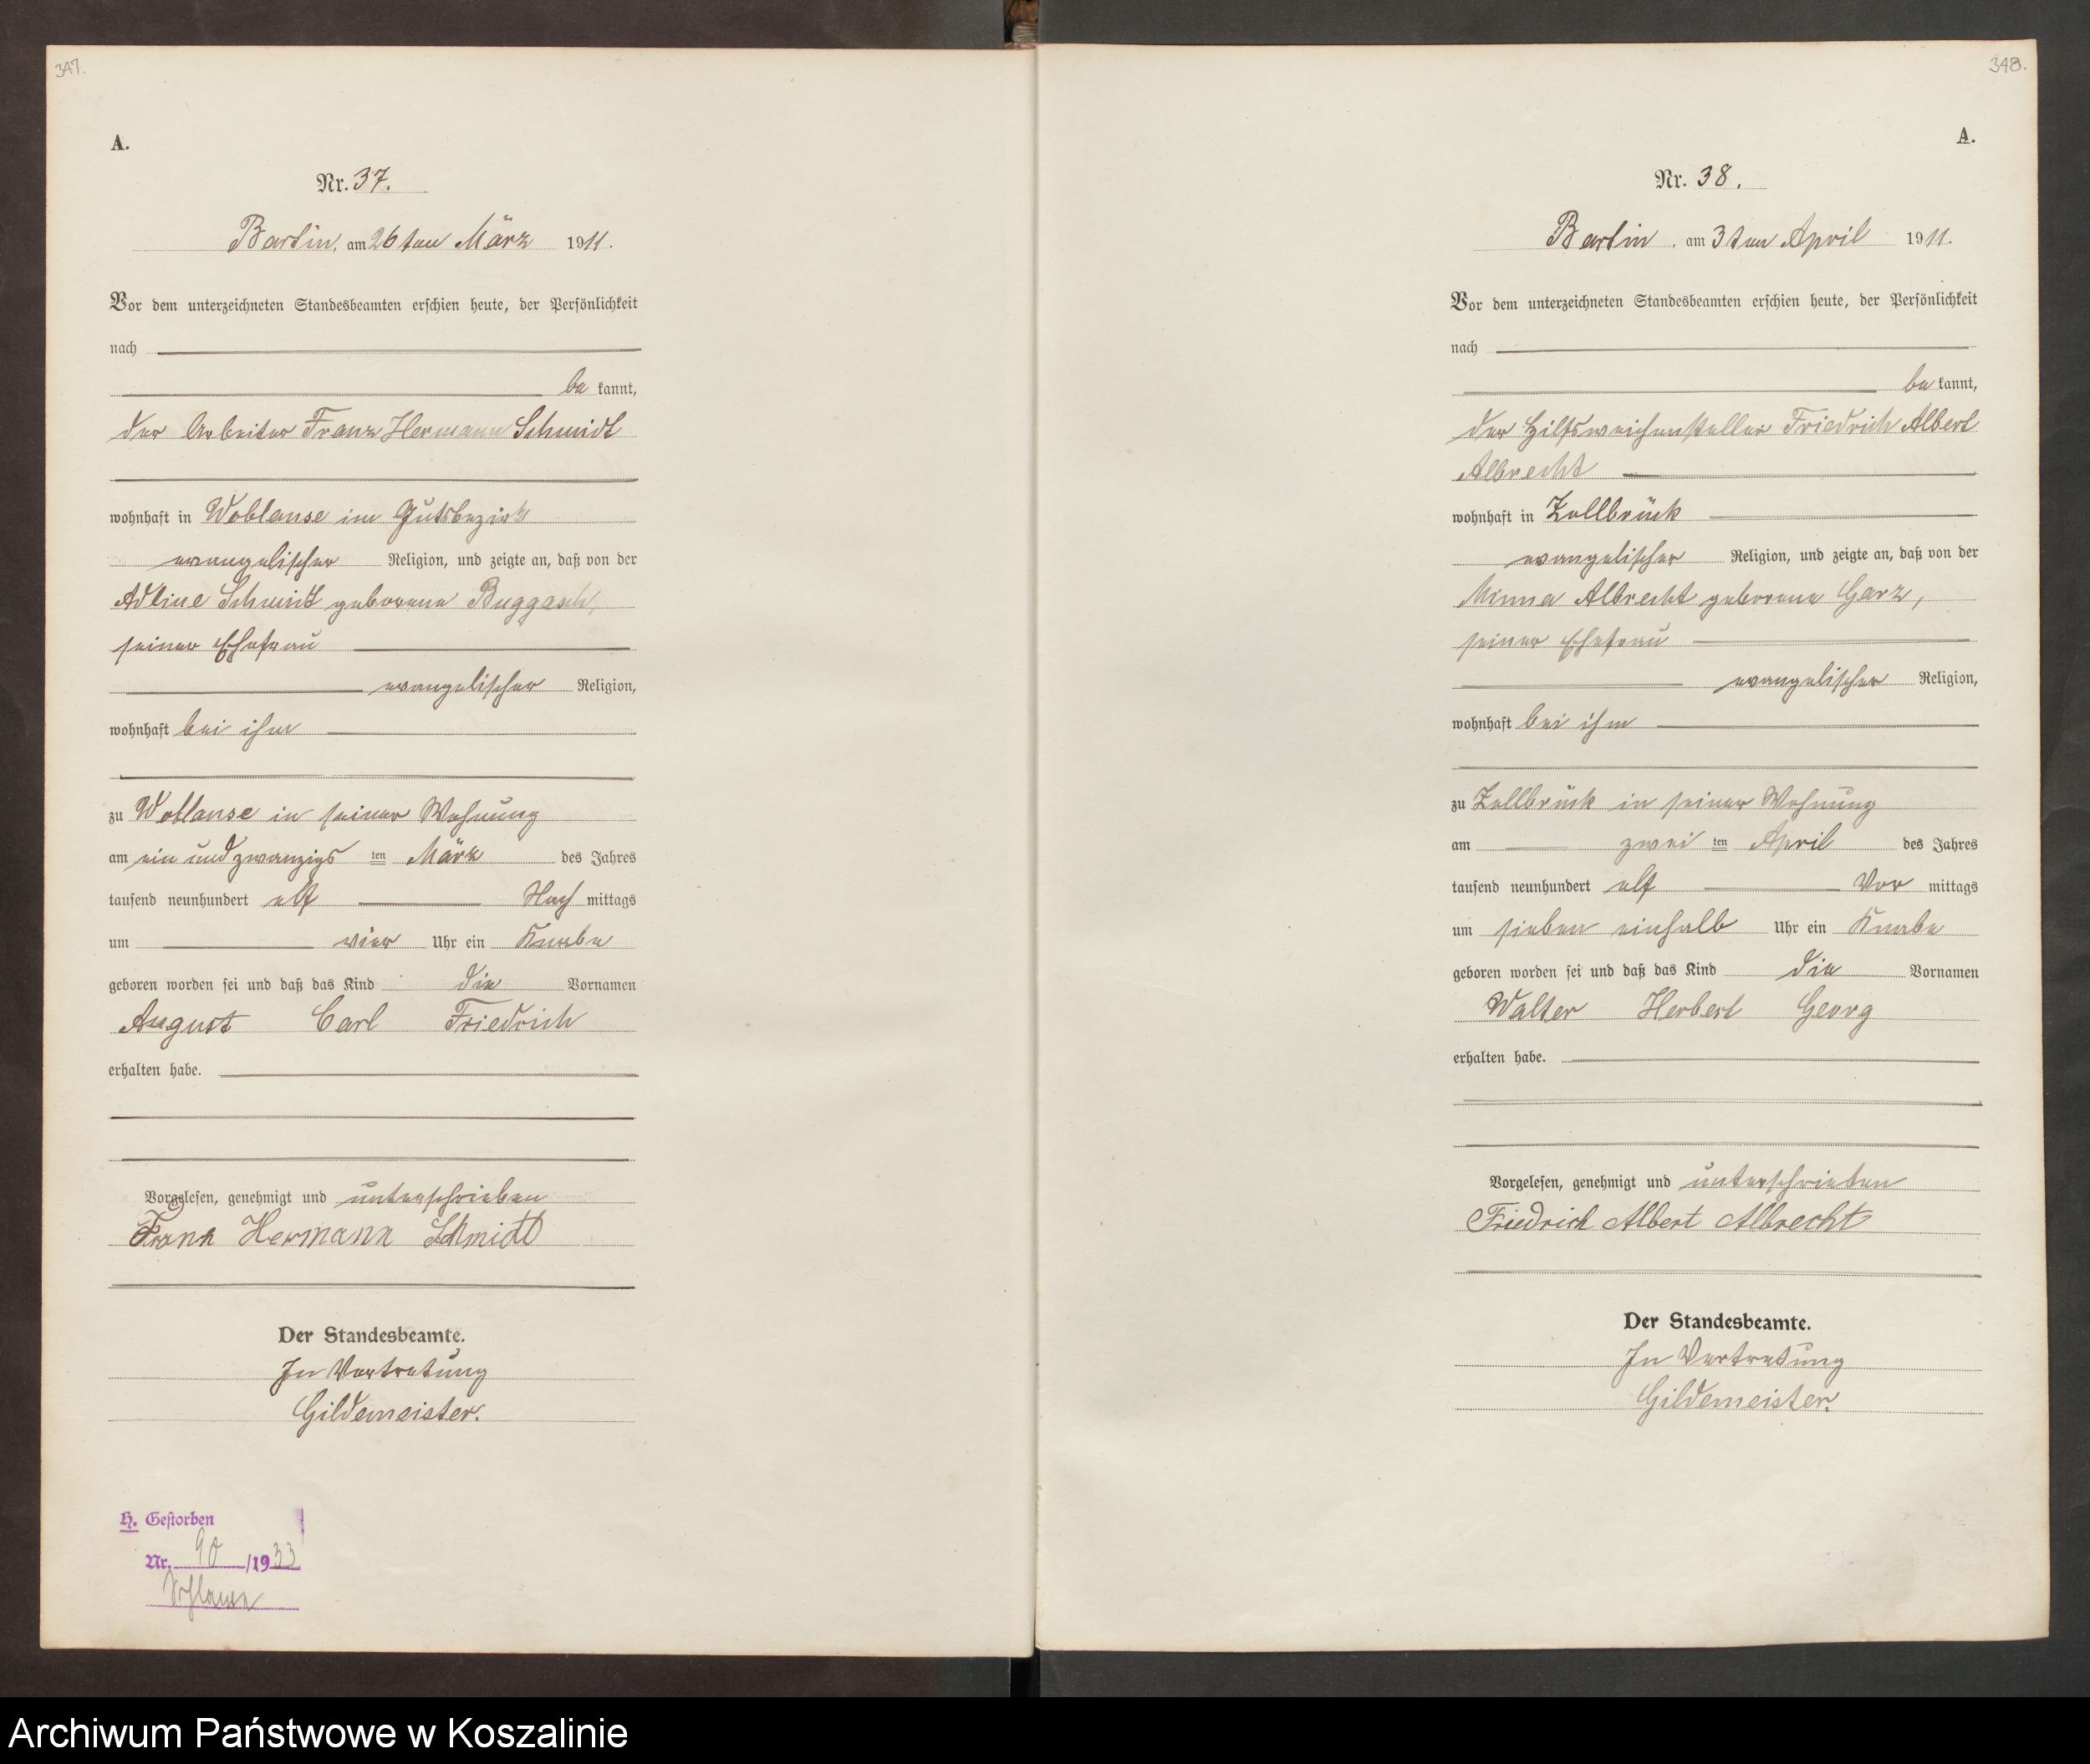 347.
A.
Nr. 37.
Bartin, am 26ten März 1911.
Vor dem unterzeichneten Standesbeamten erschien heute, der Persönlichkeit
nach
bekannt,
der Arbeiter Franz Hermann Schmidt
wohnhaft in Woblanse im Gutsbezirk
evangelischer Religion, und zeigte an, daß von der
Adline Schmidt geborene Buggasch,
seiner Ehefrau
evangelischer Religion,
wohnhaft bei ihm
zu Woblanse in seiner Wohnung
am ein und zwanzigsten März des Jahres
tausend neunhundert elf Nachmittags
um vier Uhr ein Knabe
geboren worden sei und daß das Kind die Vornamen
August Carl Friedrich
erhalten habe.
Vorgelesen, genehmigt und unterschrieben
Franz Hermann Schmidt
Der Standesbeamte.
In Vertretung
Gildemeister.
H. Gestorben
Nr. 90/1933
348.
A.
Nr. 38.
Bartin, am 3ten April 1911.
Vor dem unterzeichneten Standesbeamten erschien heute, der Persönlichkeit
nach
bekannt,
der Hilfsweichensteller Friedrich Albert
Albrecht
wohnhaft in Zollbrück
evangelischer Religion, und zeigte an, daß von der
Minna Albrecht geborene Garz,
seiner Ehefrau
evangelischer Religion,
wohnhaft bei ihm
zu Zollbrück in seiner Wohnung
am zweiten April des Jahres
tausend neunhundert elf Vormittags
um sieben einhalb Uhr ein Knabe
geboren worden sei und daß das Kind die Vornamen
Walter Herbert Georg
erhalten habe.
Vorgelesen, genehmigt und unterschrieben
Friedrich Albert Albrecht
Der Standesbeamte.
In Vertretung
Gildemeister.
Archiwum Państwowe w Koszalinie